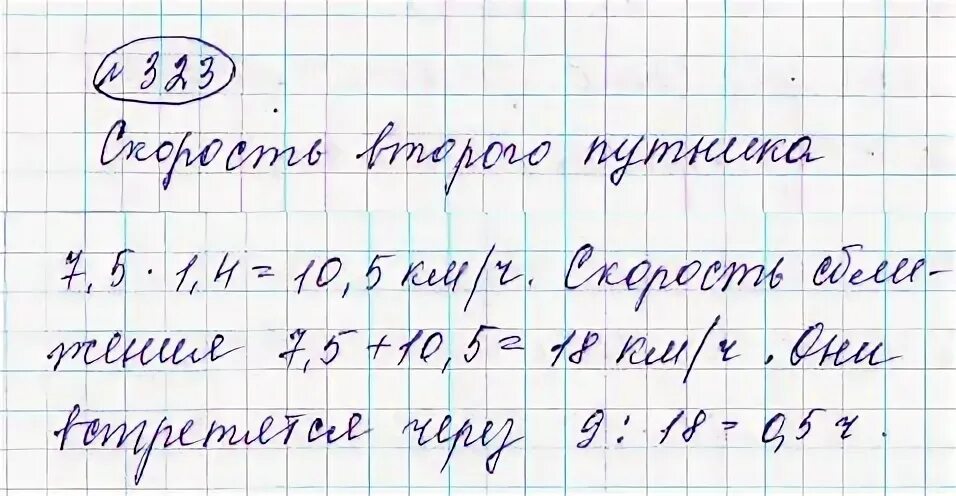 № 323
Скорость второго путника
7,5 · 1,4 = 10,5 км/ч. Скорость сбли-
жения 7,5 + 10,5 = 18 км/ч. Они
встретятся через 9 : 18 = 0,5 ч.